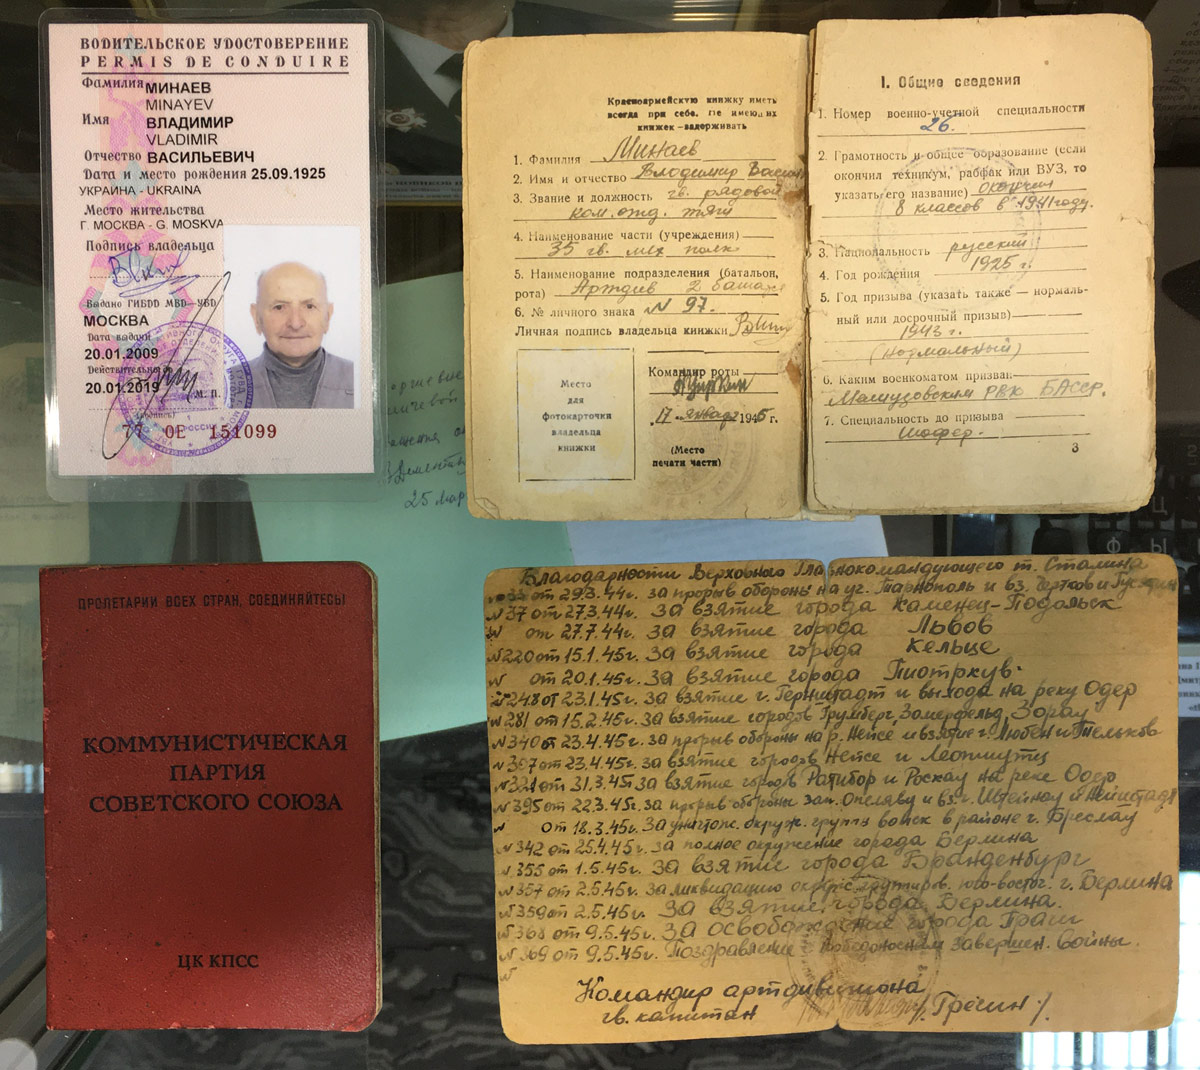 ВОДИТЕЛЬСКОЕ УДОСТОВЕРЕНИЕ
PERMIS DE CONDUIRE
Фамилия МИНАЕВ
MINAYEV
Имя ВЛАДИМИР
VLADIMIR
Отчество ВАСИЛЬЕВИЧ
Дата и место рождения 25.09.1925
УКРАИНА - UKRAINA
Место жительства
Г. МОСКВА - G. MOSKVA
Подпись владельца
Выдано ГИБДД МВД—УВД
МОСКВА
Дата выдачи
20.01.2009
Действительно до
20.01.2019
М. П.
77 ОЕ 151099
Красноармейскую книжку иметь
всегда при себе. Не имеющих
книжек—задерживать
1. Фамилия Минаев
2. Имя и отчество Владимир
3. Звание и должность гв. рядовой
ком. отд. тяги
4. Наименование части (учреждения)
35 гв. мех полк
5. Наименование подразделения (батальон,
рота) Артдив 2
6. № личного знака N 97.
Личная подпись владельца книжки
Место
для
фотокарточки
владельца
книжки
Командир роты
17 января 1945 г.
(Место
печати части)
I. Общие сведения
1. Номер военно-учетной специальности
26.
2. Грамотность и общее образование (если
окончил техникум, рабфак или ВУЗ, то
указать его название) окончил
8 классов в 1941 году.
3. Национальность русский
4. Год рождения 1925 г.
5. Год призыва (указать также — нормаль-
ный или досрочный призыв)
1943 г.
(нормальный)
6. Каким военкоматом призван
РВК БАССР.
7. Специальность до призыва
шофер.
3
25 мар
ПРОЛЕТАРИИ ВСЕХ СТРАН, СОЕДИНЯЙТЕСЬ!
КОММУНИСТИЧЕСКАЯ
ПАРТИЯ
СОВЕТСКОГО СОЮЗА
ЦК КПСС
Благодарности Верховного Главнокомандующего т. Сталина
от 29.3.44г. за прорыв обороны на уч. Тарнополь и вз.
N 37 от 27.3.44г. за взятие города Каменец-Подольск
N от 27.7.44г. за взятие города Львов
N 220 от 15.1.45г. за взятие города Кельце
N от 20.1.45г. за взятие города Пиотркув.
N 248 от 23.1.45г. за взятие г. Гернштадт и выхода на реку Одер
N 281 от 15.2.45г. за взятие городов Грумберг, Зомерфельд, Зорау
N 340 от 23.4.45г. за прорыв обороны на р. Нейсе и взятие г. Любен и
от 23.4.45г. за взятие городов Нейсе и Леопшутц
от 31.3.45г за взятие городов Ратибор и Роскау на реке Одер
N 395 от 22.3.45г. за прорыв обороны зап. и вз. г. Штейнау и
N от 18.3.45г. за уничтож. окруж. группы войск в районе г. Бреслау
N 342 от 25.4.45г. за полное окружение города Берлина
N 355 от 1.5.45г. за взятие города Бранденбург
N 357 от 2.5.45г. за ликвидацию группиров. юго-восточ. г. Берлина
N 359 от 2.5.45г. за взятие города Берлина.
N 368 от 9.5.45г. за освобождение города Праги
N 369 от 9.5.45г. Поздравление с победоносным завершен. войны.
N
Командир артдивизиона
гв. капитан /. Гречин /.